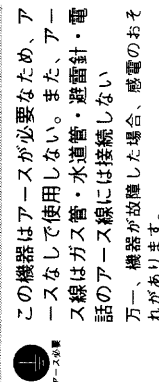 アース必要
この機器はアースが必要なため、ア
ースなしで使用しない。また、アー
ス線はガス管・水道管・避雷針・電
話のアース線には接続しない
万一、機器が故障した場合、感電のおそ
れがあります。